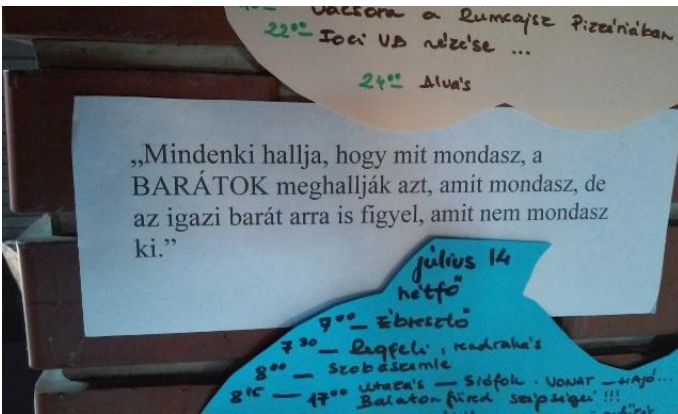 Vacsora a Rumcajsz Pizzériában
22⁰⁰ – Foci VB nézése ...
24⁰⁰ Alvás
„Mindenki hallja, hogy mit mondasz, a
BARÁTOK meghallják azt, amit mondasz, de
az igazi barát arra is figyel, amit nem mondasz
ki.”
július 14
hétfő
7⁰⁰ – Ébresztő
7³⁰ – Reggeli, rendrakás
8⁰⁰ – Szobaszemle
8¹⁵ – 17⁰⁰ Utazás – Siófok . VONAT – HAJÓ...
Balatonfüred szépségei !!!